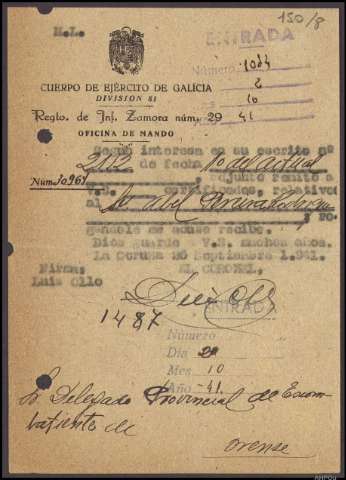 150/8
M.L.
ENTRADA
Número 1084
2
10
41
CUERPO DE EJÉRCITO DE GALICIA
DIVISION 81
Regto. de Inf. Zamora núm. 29
OFICINA DE MANDO
Según interesa en su escrito nº
2112 de fecha 10 del actual
Núm. 10961 adjunto remito a
V.S. certificados, relativo
al Abel
y ro-
gandole me acuse recibo.
Dios guarde a V.S. muchos años.
La Coruña 26 Septiembre 1.941.
EL CORONEL.
Firma:
Luis Ollo
ENTRADA
1487
Número
Dia 29
Mes 10
Año -41
Sr Delegado Provincial de Excom-
batientes de
Orense
AHPOu